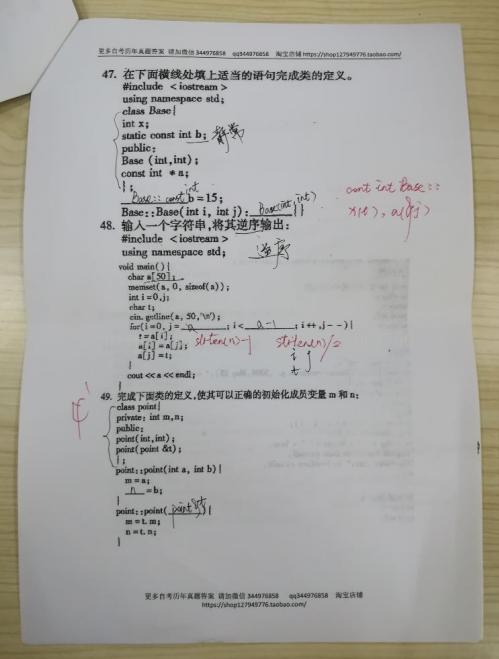 更多自考历年真题答案 请加微信 344976858 qq344976858 淘宝店铺 https://shop127949776.taobao.com/
47. 在下面横线处填上适当的语句完成类的定义。
#include <iostream>
using namespace std;
class Base{
int x;
static const int b; 静常
public:
Base (int,int);
const int *a;
};
Base:: const int b=15;
Base::Base(int i, int j): Base(int, int) { }
const int Base::
x(i), a(&j)
48. 输入一个字符串,将其逆序输出:
#include <iostream>
using namespace std; 逆序
void main(){
char a[50];
memset(a, 0, sizeof(a));
int i=0,j;
char t;
cin. getline(a, 50,'\n');
for(i=0, j= a ; i< a-1 ; i++,j--){
strlen(n)-1 strlen(n)/2
t=a[i];
a[i]=a[j];
a[j]=t;
}
cout <<a << endl;
}
49. 完成下面类的定义,使其可以正确的初始化成员变量 m 和 n:
class point{
private: int m,n;
public:
point(int,int);
point(point &t);
};
point::point(int a, int b){
m=a;
n =b;
}
point::point( point &t ){
m=t. m;
n=t. n;
}
更多自考历年真题答案 请加微信 344976858 qq344976858 淘宝店铺
https://shop127949776.taobao.com/